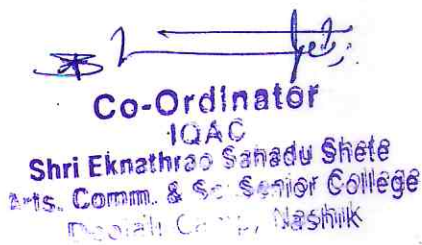 Co-Ordinator
IQAC
Shri Eknathrao Sahadu Shete
Arts. Comm. & Sc. Senior College
Deolali Camp, Nashik